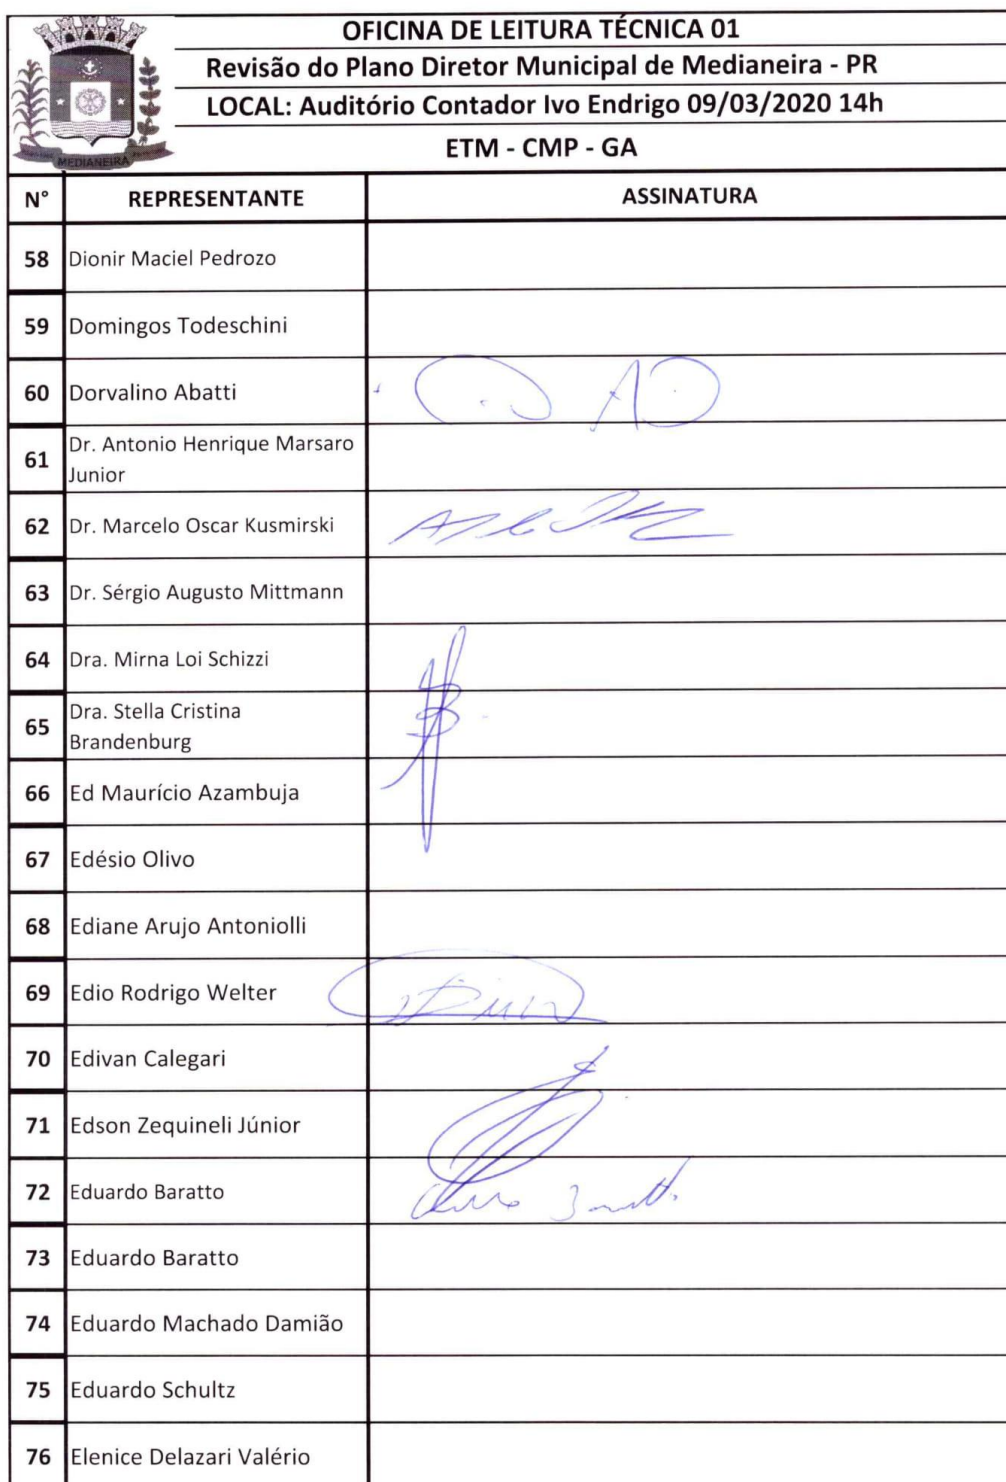 OFICINA DE LEITURA TÉCNICA 01
Revisão do Plano Diretor Municipal de Medianeira - PR
LOCAL: Auditório Contador Ivo Endrigo 09/03/2020 14h
ETM - CMP - GA
MEDIANEIRA
N° REPRESENTANTE ASSINATURA
58 Dionir Maciel Pedrozo
59 Domingos Todeschini
60 Dorvalino Abatti
61 Dr. Antonio Henrique Marsaro
Junior
62 Dr. Marcelo Oscar Kusmirski
63 Dr. Sérgio Augusto Mittmann
64 Dra. Mirna Loi Schizzi
65 Dra. Stella Cristina
Brandenburg
66 Ed Maurício Azambuja
67 Edésio Olivo
68 Ediane Arujo Antoniolli
69 Edio Rodrigo Welter
70 Edivan Calegari
71 Edson Zequineli Júnior
72 Eduardo Baratto
73 Eduardo Baratto
74 Eduardo Machado Damião
75 Eduardo Schultz
76 Elenice Delazari Valério